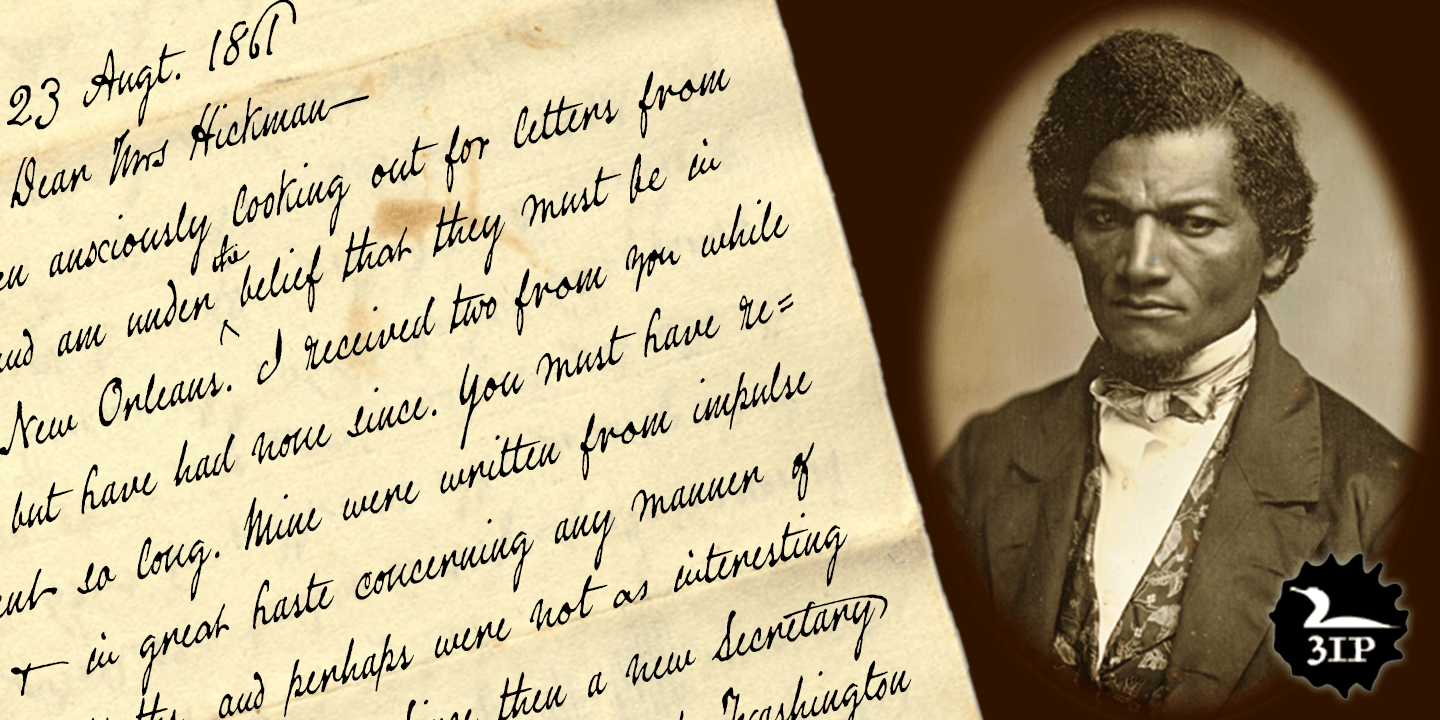 23 Augt. 1861
Dear Mrs Hickman—
anxciously looking out for letters from
and am under ^ the belief that they must be in
New Orleans. I received two from you while
but have had none since. You must have re=
so long. Mine were written from impulse
in great haste concerning any manner of
and perhaps were not as interesting
then a new Secretary
Washington
3IP